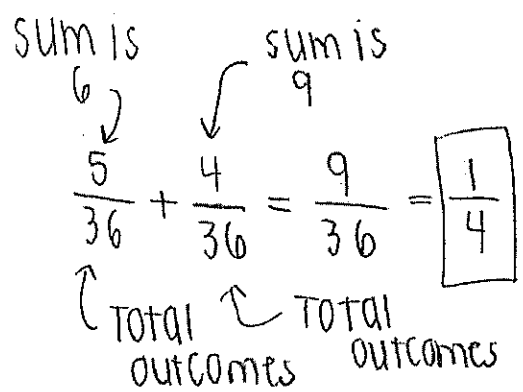 sum is
6
sum is
9
5/36 + 4/36 = 9/36 = 1/4
Total
outcomes
Total
outcomes